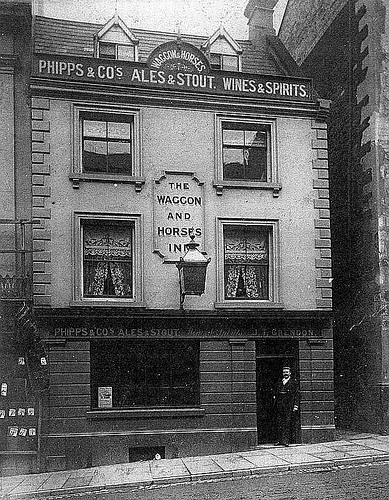 WAGGON & HORSES
INN
PHIPPS & CO'S ALES & STOUT. WINES & SPIRITS.
THE
WAGGON
AND
HORSES
INN
PHIPPS & CO'S ALES & STOUT. J. T. GRENDON